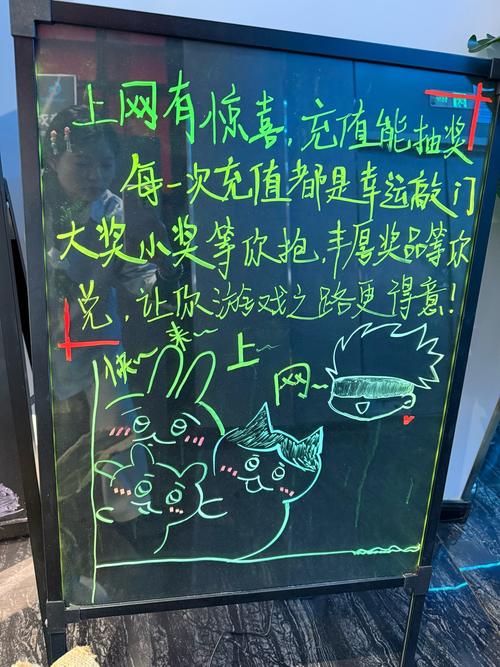 上网有惊喜,充值能抽奖
每一次充值都是幸运敲门
大奖小奖等你抱,丰厚奖品等你
兑,让你游戏之路更得意!
快~来~上~网~